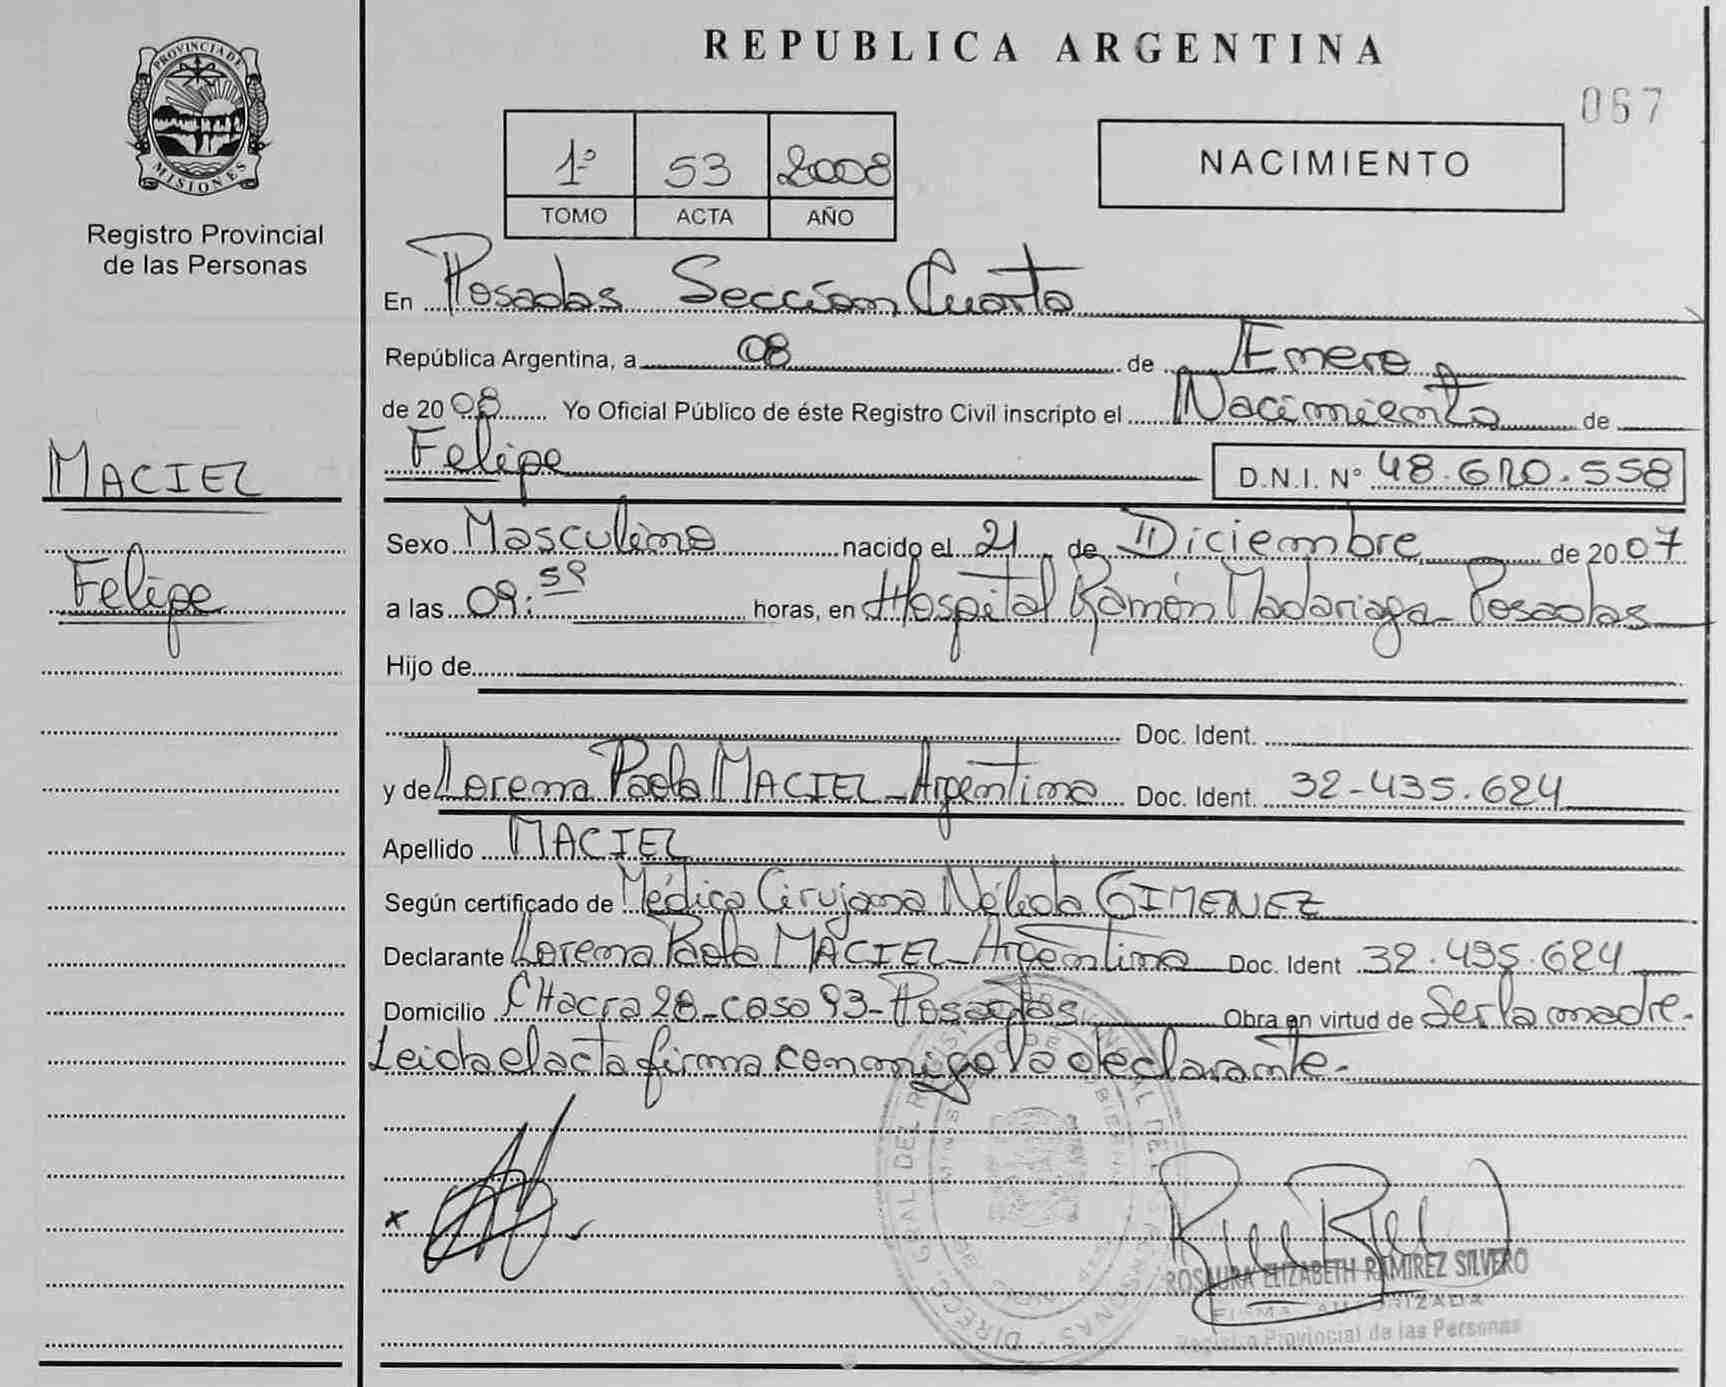 PROVINCIA DE
MISIONES
Registro Provincial
de las Personas
MACIEL
Felipe
REPUBLICA ARGENTINA
067
1º 53 2008
TOMO ACTA AÑO
NACIMIENTO
En Posadas Sección Cuarta
República Argentina, a 08 de Enero
de 2008 Yo Oficial Público de éste Registro Civil inscripto el Nacimiento de
Felipe D.N.I. Nº 48.620.558
Sexo Masculino nacido el 21 de Diciembre de 2007
a las 09:59 horas, en Hospital Ramón Madariaga - Posadas
Hijo de
Doc. Ident.
y de Lorena Paola MACIEL - Argentina Doc. Ident. 32-435.624
Apellido MACIEL
Según certificado de Médica Cirujana Nélida GIMENEZ
Declarante Lorena Paola MACIEL - Argentina Doc. Ident 32.435.624
Domicilio CHacra 28 - casa 93 - Posadas Obra en virtud de Ser la madre.
Leida el acta firma conmigo la declarante.-
x
ROSAURA ELIZABETH RAMIREZ SILVERO
FIRMA AUTORIZADA
Registro Provincial de las Personas